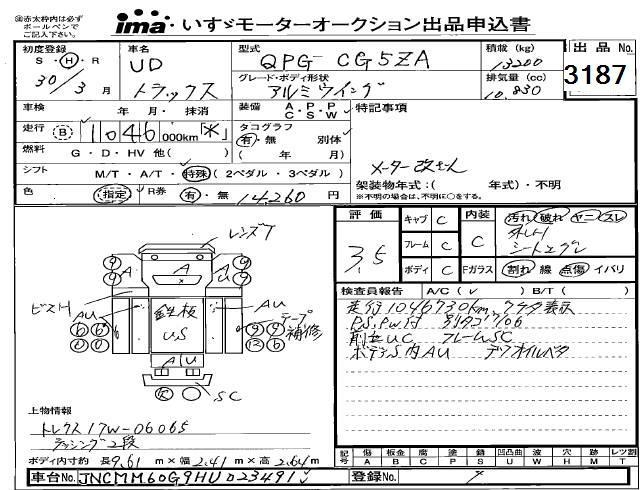 ㊟赤太枠内は必ず
ボールペンで
ご記入下さい。
ima いすゞモーターオークション出品申込書
初度登録
S・H・R
30/3月
車名
UD
トラックス
型式
QPG-CG5ZA
グレード・ボディ形状
アルミウイング
積載 (kg)
13200
排気量 (cc)
10,830
出品 No.
3187
車検 年・月・抹消
装備 A・P・P C・S・W
特記事項
走行 B 1046 000km
タコグラフ
有・無 別体
( 年 月)
燃料 G・D・HV 他( )
シフト M/T・A/T・特殊 (2ペダル・3ペダル)
メーター改ざん
架装物年式:( 年式)・不明
※架装物年式は、不明時に○をする。
色 指定 R券 有・無 14,260 円
評価
3.5
キャブ C
フレーム C
ボディ C
内装
C
Fガラス
汚れ 破れ ヤニ スレ
シートエグレ
割れ 線 点傷 イバリ
検査員報告 A/C(✓) B/T( )
走行1046730km
P.S.PW付
フレームSC
ボデー S内AU デフオイルベタ
レンズT
A
A
A U
ビスH
AU
鉄板
US
AU
テープ
補修
A U
SC
上物情報
トレクス17W-06065
ラッシング2段
ボディ内寸約 長9.61 m×幅 2.41 m×高 2.64 m
記号
傷 板金 腐 塗 錆 凹凸曲 波 穴 跡 レツ割
A B C P S U W H M T
車台No. JNCMM60G9HU023491
登録No.